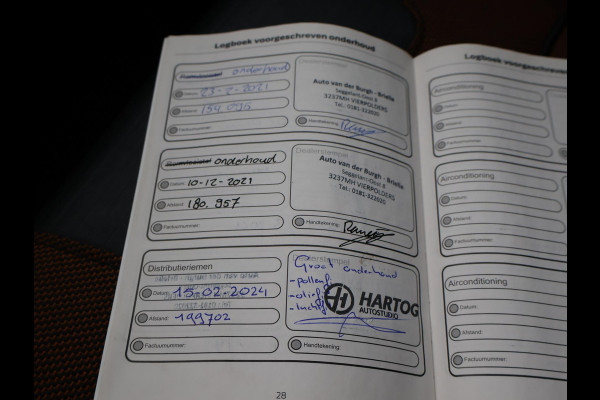 Logboek voorgeschreven onderhoud
onderhoud
Datum: 23-2-2021
154 095
Factuurnummer:
Auto van der Burgh - Brielle
3237MH VIERPOLDERS
Tel.: 0181-322020
Handtekening:
onderhoud
Datum: 10-12-2021
Afstand: 180.957
Factuurnummer:
Dealerstempel
Auto van der Burgh - Brielle
3237MH VIERPOLDERS
Tel.: 0181-322020
Handtekening:
Distributieriemen
Datum: 15-02-2024
Afstand: 199702
Factuurnummer:
Dealerstempel
Groot onderhoud
HARTOG
AUTOSTUDIO
Handtekening:
28
Logboek voorgeschreven
Airconditioning
Datum:
Afstand:
Factuurnummer:
Airconditioning
Datum:
Afstand:
Factuurnummer:
Airconditioning
Datum:
Afstand:
Factuurnummer: